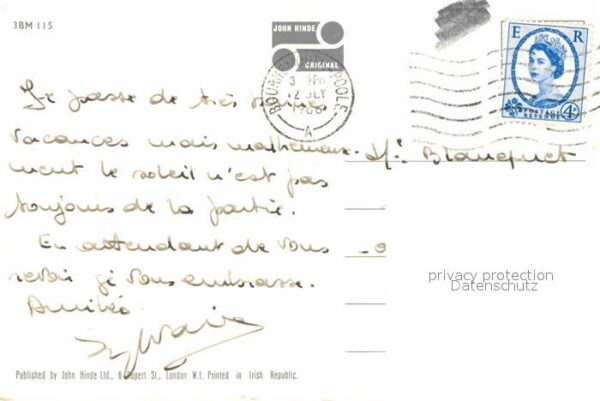 3BM 115
JOHN HINDE
ORIGINAL
BOURNEMOUTH POOLE
3 - PM
12 JLY
1966
A
E R
POSTAGE
REVENUE
4D
Je passe de très bonnes
vacances mais malheureuse-
ment le soleil n'est pas
toujours de la partie.
En attendant de vous
revoir je vous embrasse.
Amitiés
Sylvaine
Blanquet
privacy protection
Datenschutz
Published by John Hinde Ltd., 6 Rupert St., London W1, Printed in Irish Republic.